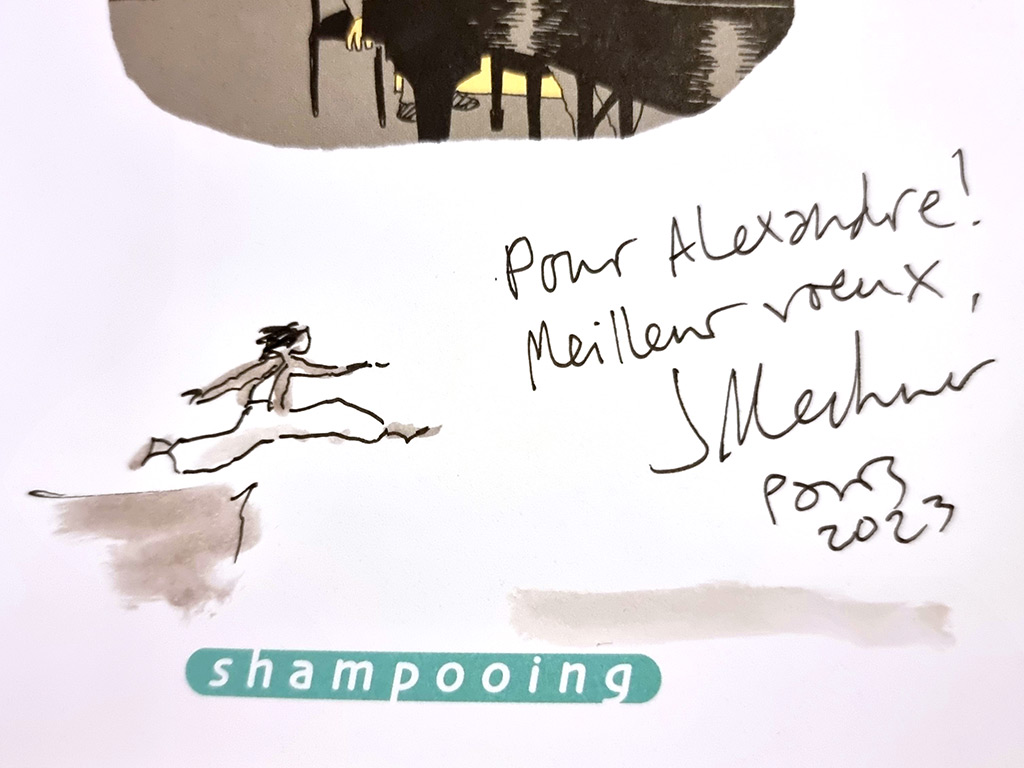 Pour Alexandre!
Meilleur voeux,
JMechner
Paris
2023
shampooing